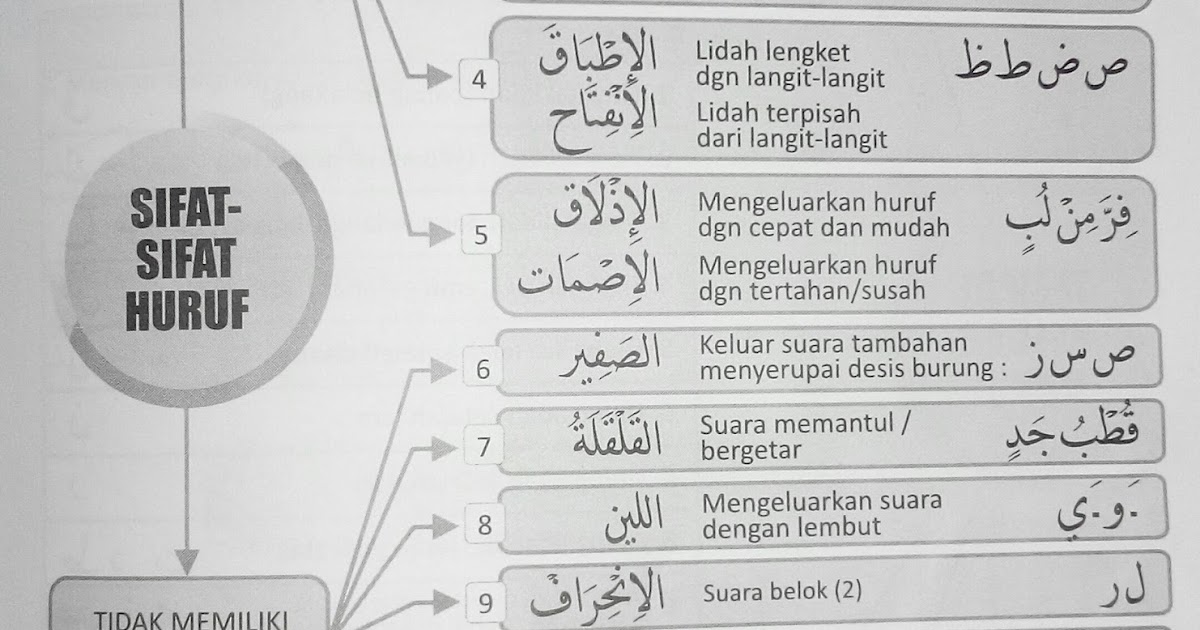 SIFAT-
SIFAT
HURUF
4
الإِطْبَاقَ
Lidah lengket
dgn langit-langit
ص ض ط ظ
الإِنْفِتَاح
Lidah terpisah
dari langit-langit
5
الإِذْلَاق
Mengeluarkan huruf
dgn cepat dan mudah
فِرَّ مِنْ لُبٍ
الإِصْمَات
Mengeluarkan huruf
dgn tertahan/susah
6
الصَفِير
Keluar suara tambahan
menyerupai desis burung :
ص س ز
7
القَلْقَلَةُ
Suara memantul /
bergetar
قُطْبُ جَدٍ
8
اللين
Mengeluarkan suara
dengan lembut
ـَو ـَي
9
الإِنْحِرَافْ
Suara belok (2)
ل ر
TIDAK MEMILIKI